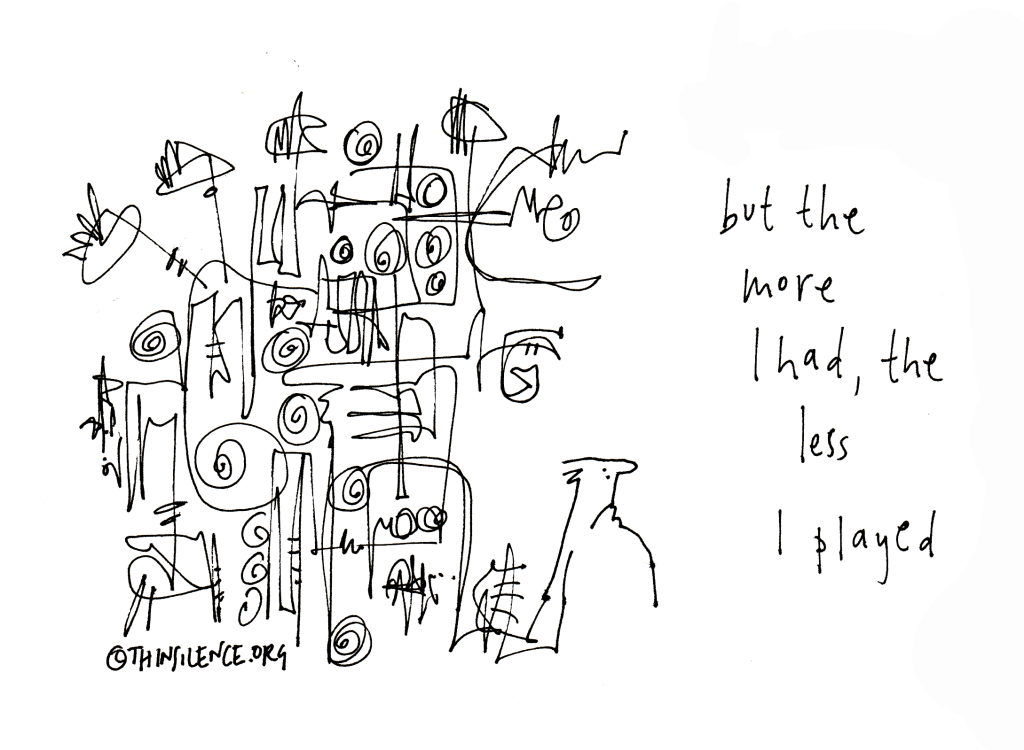 but the
more
I had, the
less
I played
©THINSILENCE.ORG